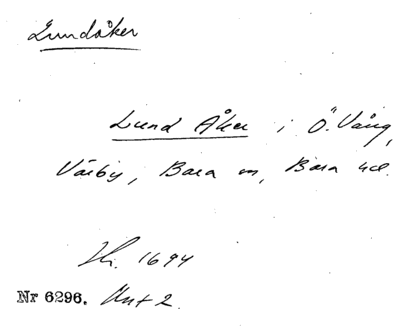 Lundåker
Lund Åker i Ö. Vång,
Värby, Bara sn, Bara hd.
Hs. 1694
Nr 6296. Akt 2.